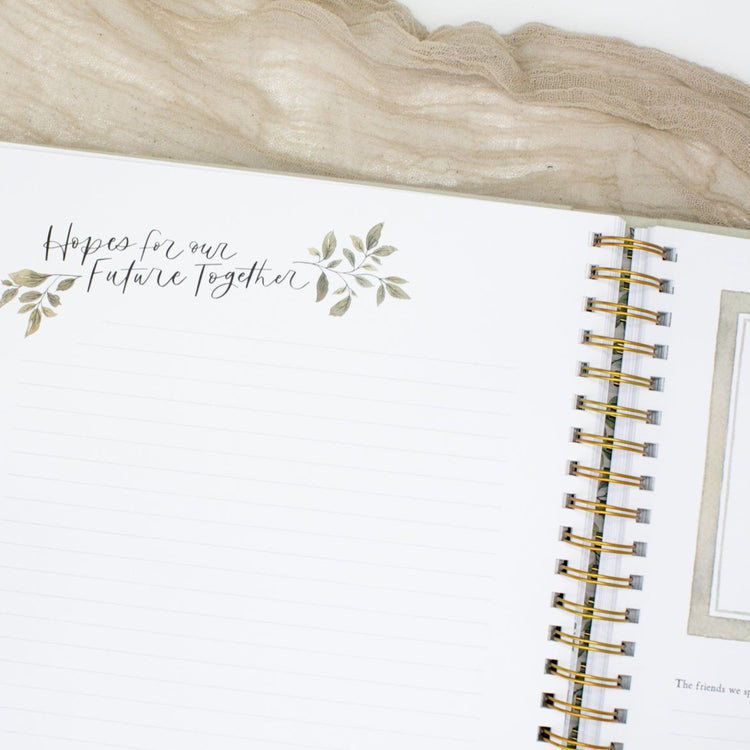 Hopes for our
Future Together
The friends we